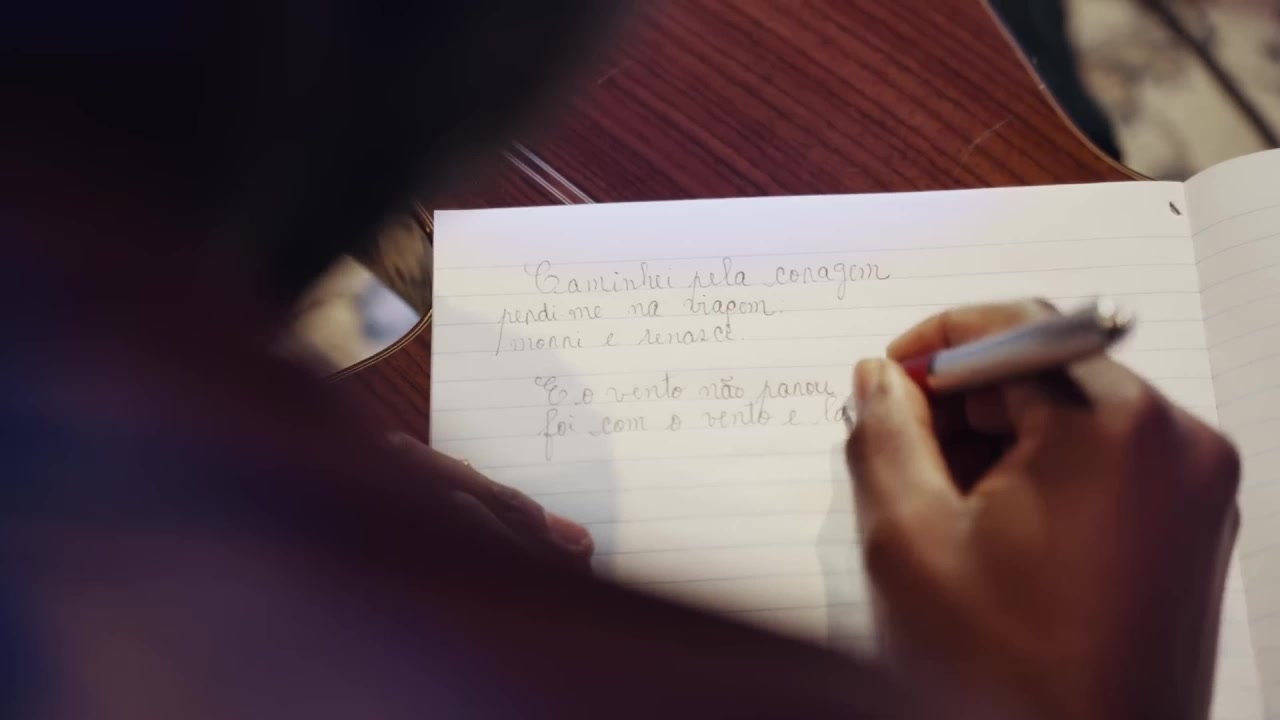 Caminhei pela coragem
perdi-me na viagem.
morri e renasci.
E o vento não parou
foi com o vento e